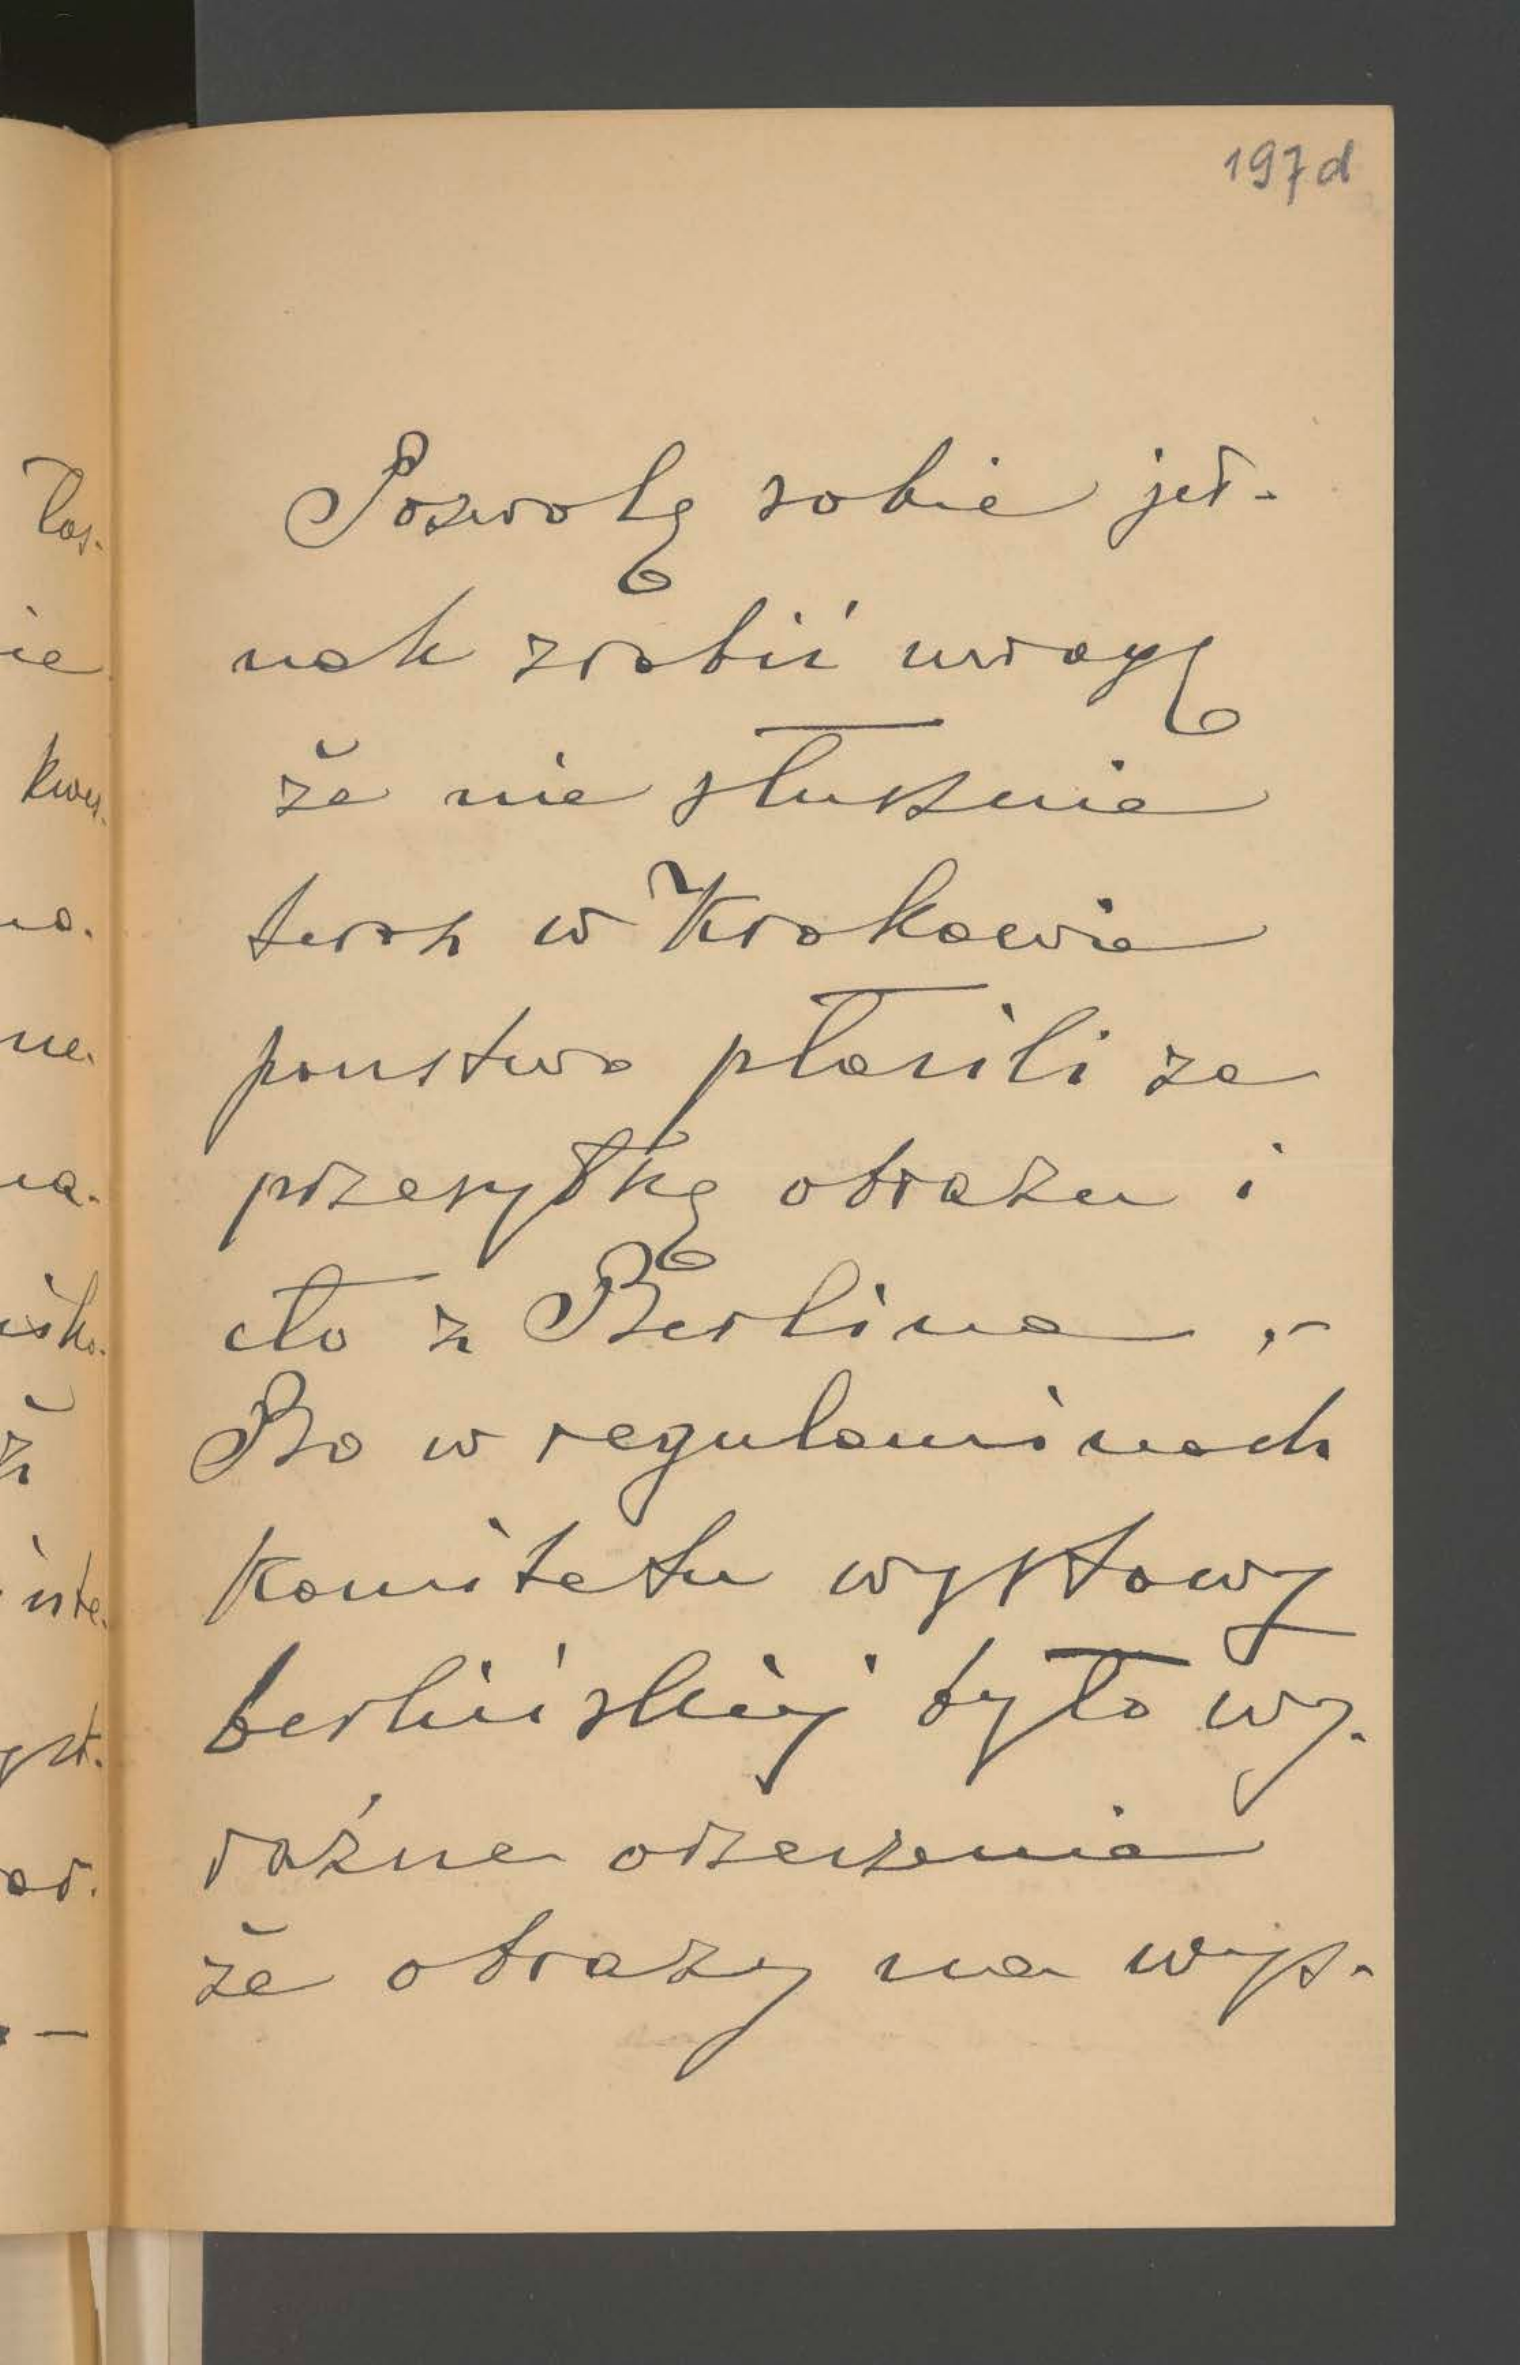 197d
Pozwolę sobie jed-
nak zrobić uwagę
że nie słusznie
teraz w Krakowie
panstwo płacili za
przesyłkę obrazu i
cło z Berlina .-
Bo w regulaminach
Komitetu wystawy
berlińskiej było wy-
raźne orzeczenie
że obrazy na wys-